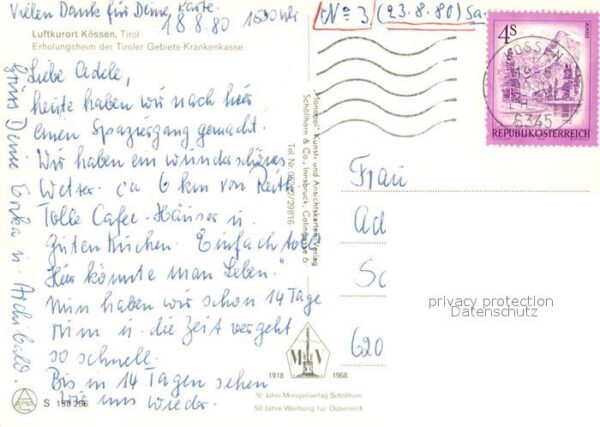 Vielen Dank für Deine Karte.
18.8.80 1500 Uhr
N° 3 (23.8.80) Sa.
Luftkurort Kössen, Tirol
Erholungsheim der Tiroler Gebiets-Krankenkasse
Liebe Adele,
heute haben wir nach hier
einen Spaziergang gemacht.
Wir haben ein wunderschönes
Wetter. ca 6 km von Reith
Tolle Cafee-Häuser u.
guten Kuchen. Einfach toll
Hier könnte man Leben."
Nun haben wir schon 14 Tage
rum u. die Zeit vergeht
so schnell.
Bis in 14 Tagen sehen
wir uns wieder.
Gruss Deine Erika u. Archibald.
"Monopol" Kunst- und Ansichtskarten-Verlag
Schöllhorn & Co., Innsbruck, Colingasse 6
4S
REPUBLIK ÖSTERREICH
KÖSSEN
6345
Frau
Ad
Sc
620
privacy protection
Datenschutz
M V
1918 1968
50 Jahre Monopolverlag Schöllhorn
50 Jahre Werbung für Österreich